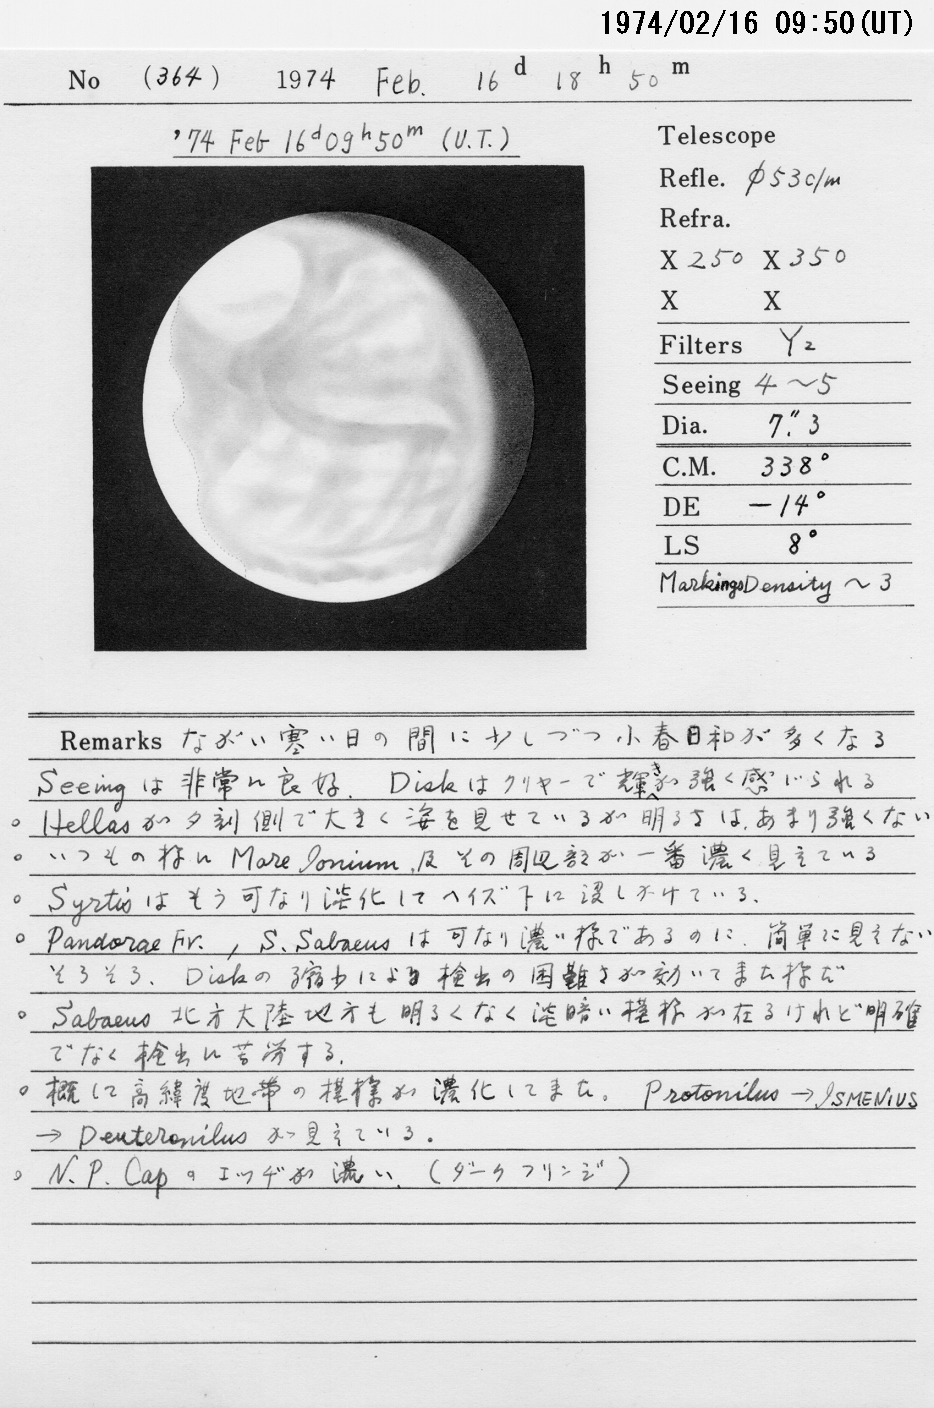 1974/02/16 09:50(UT)
No (364) 1974 Feb. 16 d 18 h 50 m
'74 Feb 16d09h50m (U.T.)
Telescope
Refle. φ53c/m
Refra.
X 250 X 350
X X
Filters Y2
Seeing 4~5
Dia. 7."3
C.M. 338°
DE -14°
LS 8°
Markings Density ~3
Remarks ながい寒い日の間に少しづつ小春日和が多くなる
Seeing は非常に良好. Diskはクリヤーで輝きが強く感じられる
○ Hellasが夕刻側で大きく姿を見せているが明るさは、あまり強くない
○ いつもの様に Mare Ionium, 及その周辺部が一番濃く見えている
○ Syrtisはもう可なり淡化してヘイズ下に没しかけている.
○ Pandorae Fr., S. Sabaeus は可なり濃い様であるのに、簡単に見えない
そろそろ、Diskの縮少による検出の困難さが効いてきた様だ
○ Sabaeus 北方大陸地方も明るくなく淡暗い模様が在るけれど明確
でなく検出に苦労する.
○ 概して高緯度地帯の模様が濃化してきた。 Protonilus → ISMENIUS
→ Deuteronilus が見えている.
○ N.P. Cap のエッヂが濃い. (ダークフリンジ)